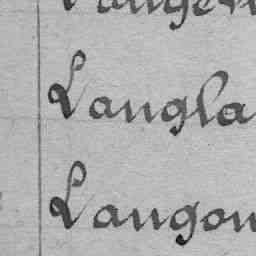 Langla
Langon